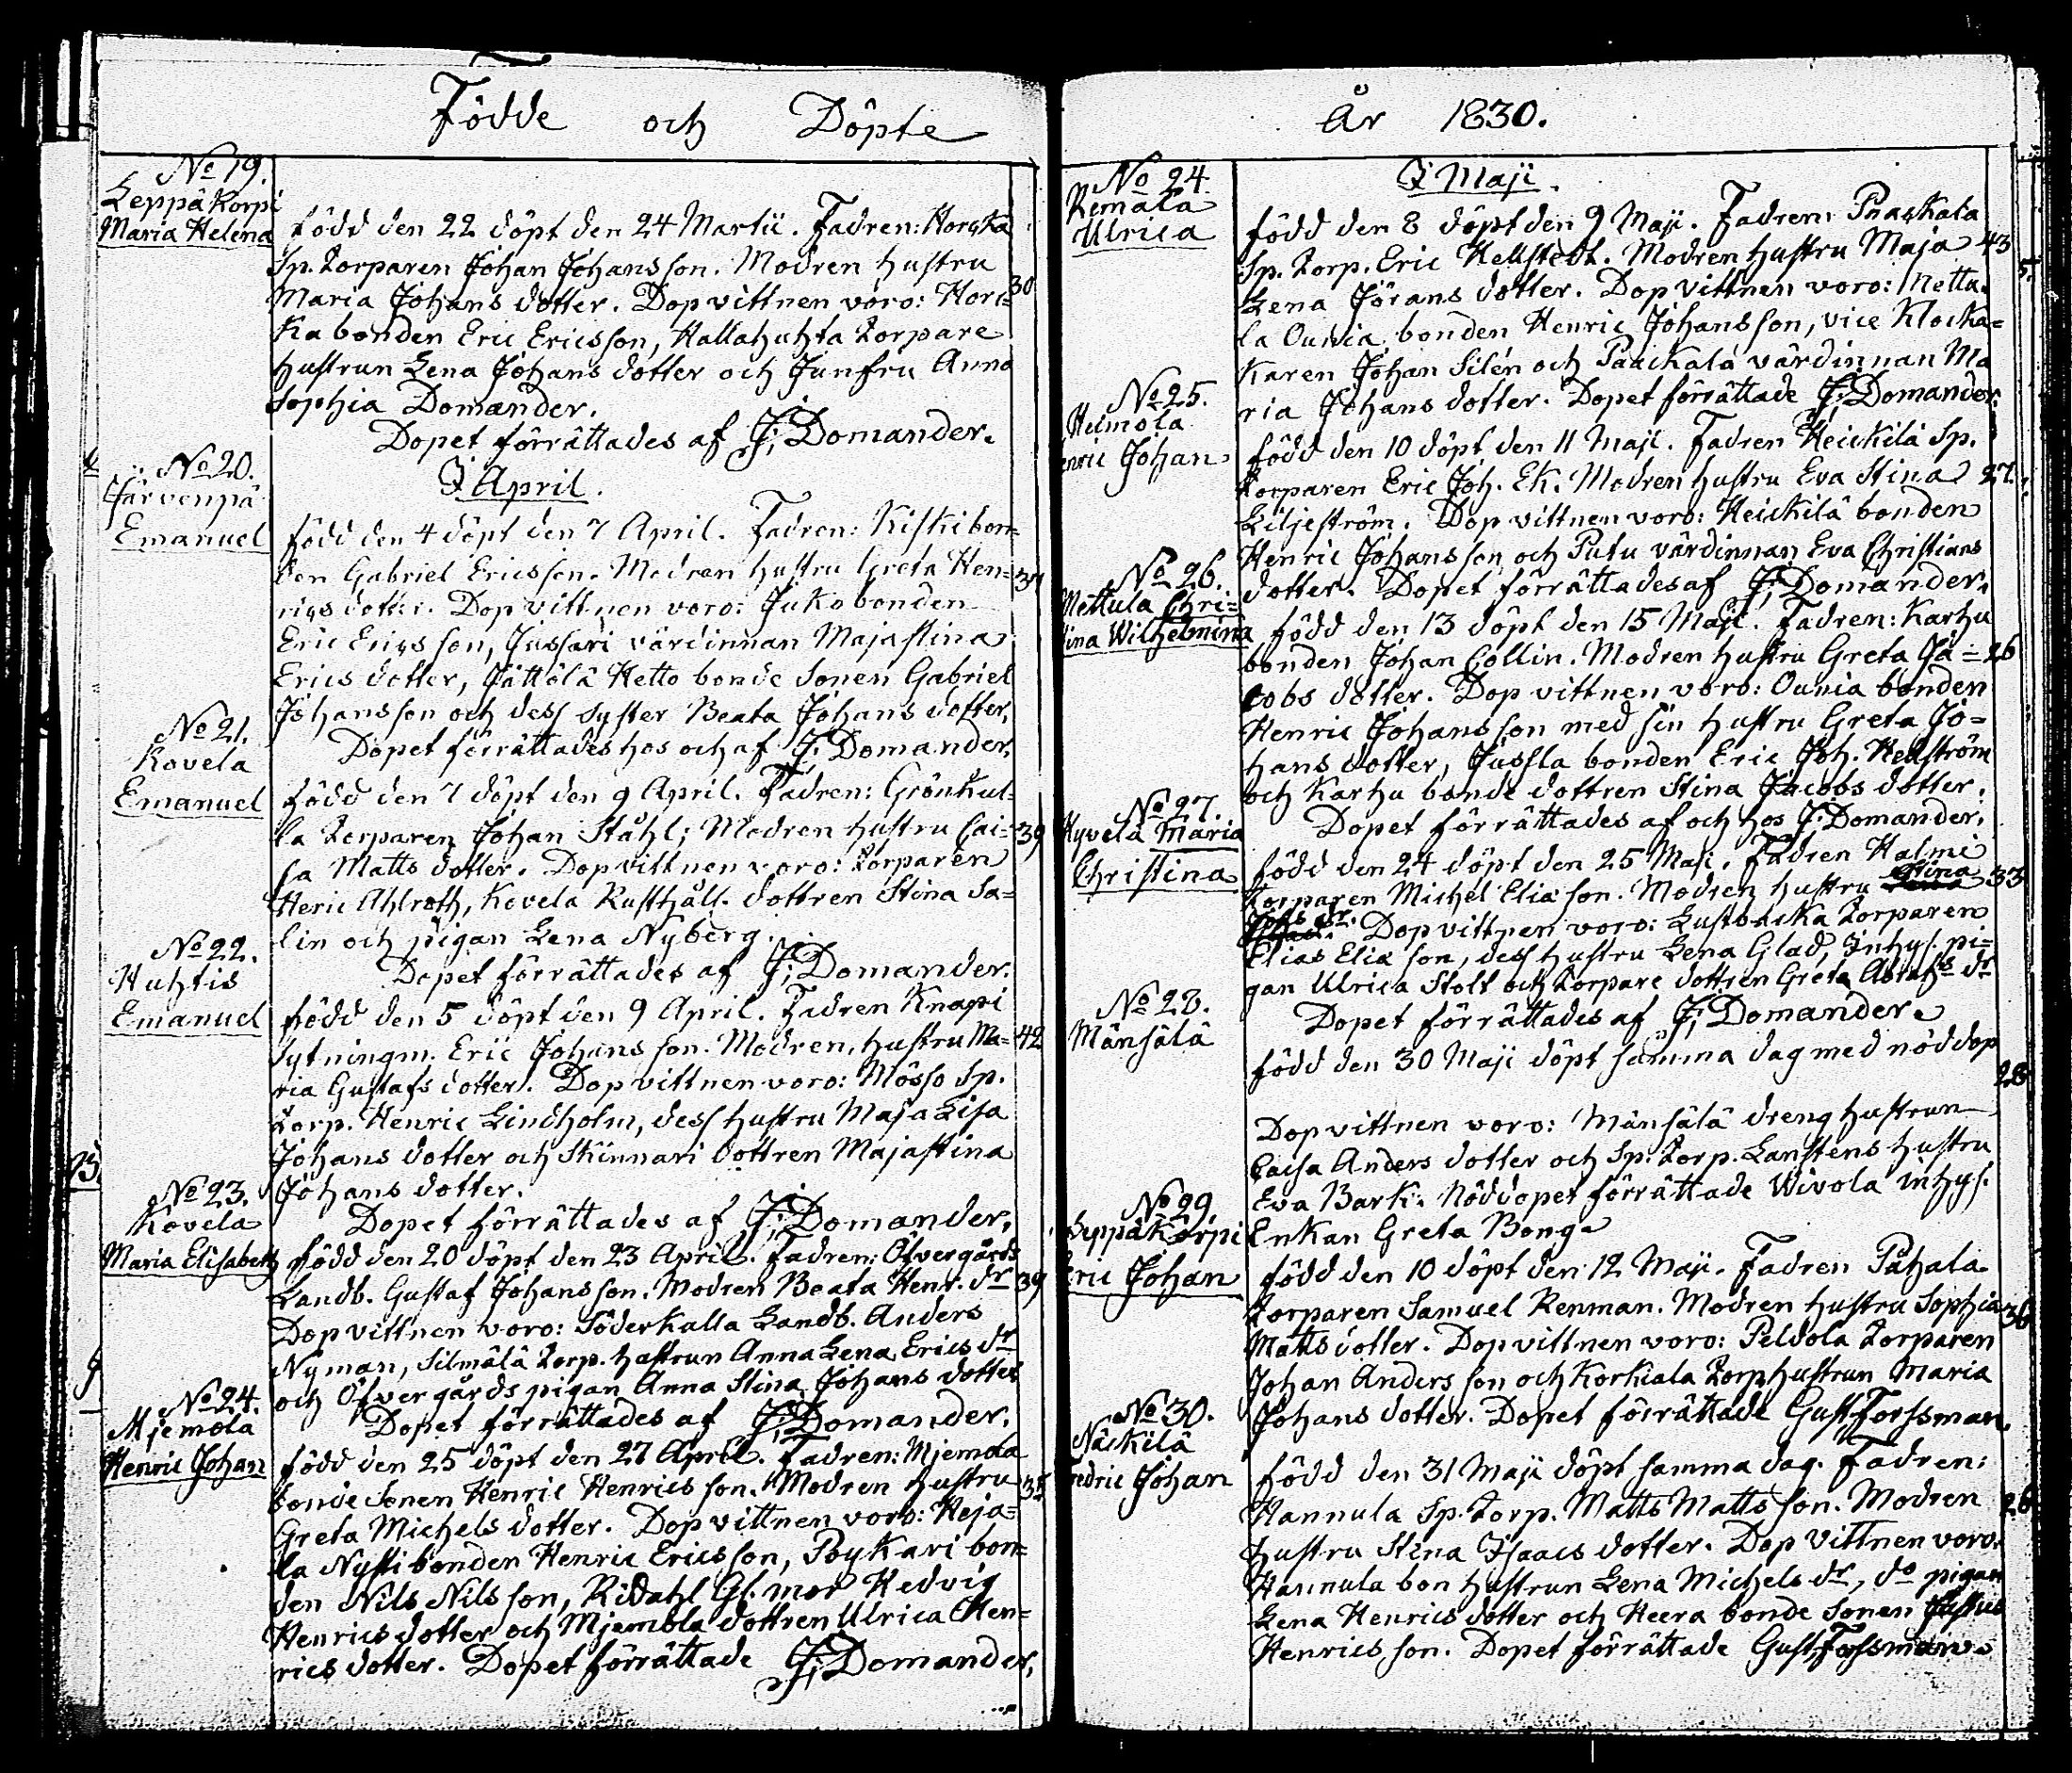 Födde och Döpte
No 19.
Leppäkorpi
Maria Helena
född den 22 döpt den 24 Martii. Fadren: Horcka
Sp. Torparen Johan Johansson. Modren hustru
Maria Johans dotter. Dop vittnen voro: Horc= 30
ka bonden Eric Ericsson, Hallahuhta Torpare
hustrun Lena Johans dotter och Junfru Anna
Sophia Domander.
Dopet förrättades af J. Domander.
I April.
No 20.
Järvenpä
Emanuel
född den 4 döpt den 7 April. Fadren: Kiskibon=
den Gabriel Ericsson. Modren hustru Greta Hen=
rics dotter. Dop vittnen voro: Juko bonden
Eric Erics son, Jussari värdinnan Maja Stina
Erics dotter, Jättölä Hetto bonde Sonen Gabriel
Johansson och dess syster Beata Johans dotter,
Dopet förrättades hos och af J. Domander.
No 21.
Kovela
Emanuel
född den 7 döpt den 9 April. Fadren: Grönkul=
la Torparen Johan Ståhl; Modren hustru Cai= 39
sa Matts dotter. Dop vittnen voro: Torparen
Heric Ahlroth, Kovela Rusthåll. dottren Stina Sa=
lin och pigan Lena Nyberg.
Dopet förrättades af J. Domander.
No 22.
Huhtis
Emanuel
född den 5 döpt den 9 April. Fadren Knapi
Sytningm. Eric Johans son. Modren, hustru Ma= 42
ria Gustafs dotter. Dop vittnen voro: Mösso Sp.
Torp. Henric Lindholm, dess hustru Maja Lisa
Johans dotter och Skinnari dottren Maja Stina
Johans dotter.
Dopet förrättades af J. Domander.
No 23.
Kovela
Maria Elisabeth
född den 20 döpt den 23 April. Fadren: Öfvergårds
Landb. Gustaf Johansson. Modren Beata Henr. dr 39
Dop vittnen voro: Söderkalla Landb. Anders
Nyman, Silmälä Torp. hustrun Anna Lena Erics dr
och Öfvergårds pigan Anna Stina Johans dotter
Dopet förrättades af J. Domander.
No 24.
Mjemola
Henric Johan
född den 25 döpt den 27 April. Fadren: Mjemola
bonde Sonen Henric Henrics son. Modren hustru
Greta Michels dotter. Dop vittnen voro: Heja=
la Nysti bonden Henric Ericsson, Poykari bon=
den Nils Nilsson, Ridahl Gl. mor Hedvig
Henrics dotter och Mjemola dottren Ulrica Hen=
rics dotter. Dopet förrättade J. Domander.
År 1830.
I Maji.
No 24.
Remala
Ulrica
född den 8 döpt den 9 Maji. Fadren: Paaskala
Sp. Torp. Eric Hellstedt. Modren hustru Maja 43
Lena Jörans dotter. Dop vittnen voro: Mettu=
la Ounia bonden Henric Johansson, vice Klocka=
karen Johan Silén och Paackala värdinnan Ma
ria Johans dotter. Dopet förrättade J. Domander.
No 25.
Heimola
enric Johan
född den 10 döpt den 11 Maji. Fadren Heickilä Sp.
Torparen Eric Joh. Ek. Modren hustru Eva Stina 27.
Liljeström. Dop vittnen voro: Heickilä bonden
Henric Johansson och Putu värdinnan Eva Christians
dotter. Dopet förrättades af J. Domander.
No 26.
Mettula Chri=
tina Wilhelmina
född den 13 döpt den 15 Maji. Fadren: Karhu
bonden Johan Collin. Modren hustru Greta Ja= 26
cobs dotter. Dop vittnen voro: Ounia bonden
Henric Johansson med sin hustru Greta Jo=
hans dotter, Jussla bonden Eric Joh. Hellström
och Karhu bonde dottren Stina Jacobs dotter.
Dopet förrättades af och hos J. Domander.
No 27.
Hyvelä Maria
Christina
född den 24 döpt den 25 Maji. Fadren Halmi
Torparen Michel Elia son. Modren hustru Stina 33
dr. Dop vittnen voro: Lustbacka Torparen
Elias Elia son, dess hustru Lena Glad, Inhys. pi=
gan Ulrica Stolt och Torpare dottren Greta Abrahs dr
Dopet förrättades af J. Domander.
No 28.
Mänsälä
född den 30 Maji döpt samma dag med nöddop
28
Dop vittnen voro: Mänsälä dreng hustrun
Caisa Anders dotter och Sp. Torp. Lanstens hustru
Eva Bark. Nöddopet förrättade Wivola inhys.
Enkan Greta Bong.
No 29.
Leppäkorpi
Eric Johan
född den 10 döpt den 12 Maji. Fadren Påhala
Torparen Samuel Renman. Modren hustru Sophia 36
Matts dotter. Dop vittnen voro: Peldola Torparen
Johan Anders son och Korkiala Torp hustrun Maria
Johans dotter. Dopet förrättade Gust. Forssman.
No 30.
Näckilä
redric Johan
född den 31 Maji döpt samma dag. Fadren:
Hannula Sp. Torp. Matts Matts son. Modren 26
hustru Stina Isaacs dotter. Dop vittnen voro:
Hannula bon hustrun Lena Michels dr, do pigan
Lena Henrics dotter och Heera bonde Sonen
Henrics son. Dopet förrättade Gust. Forssman.